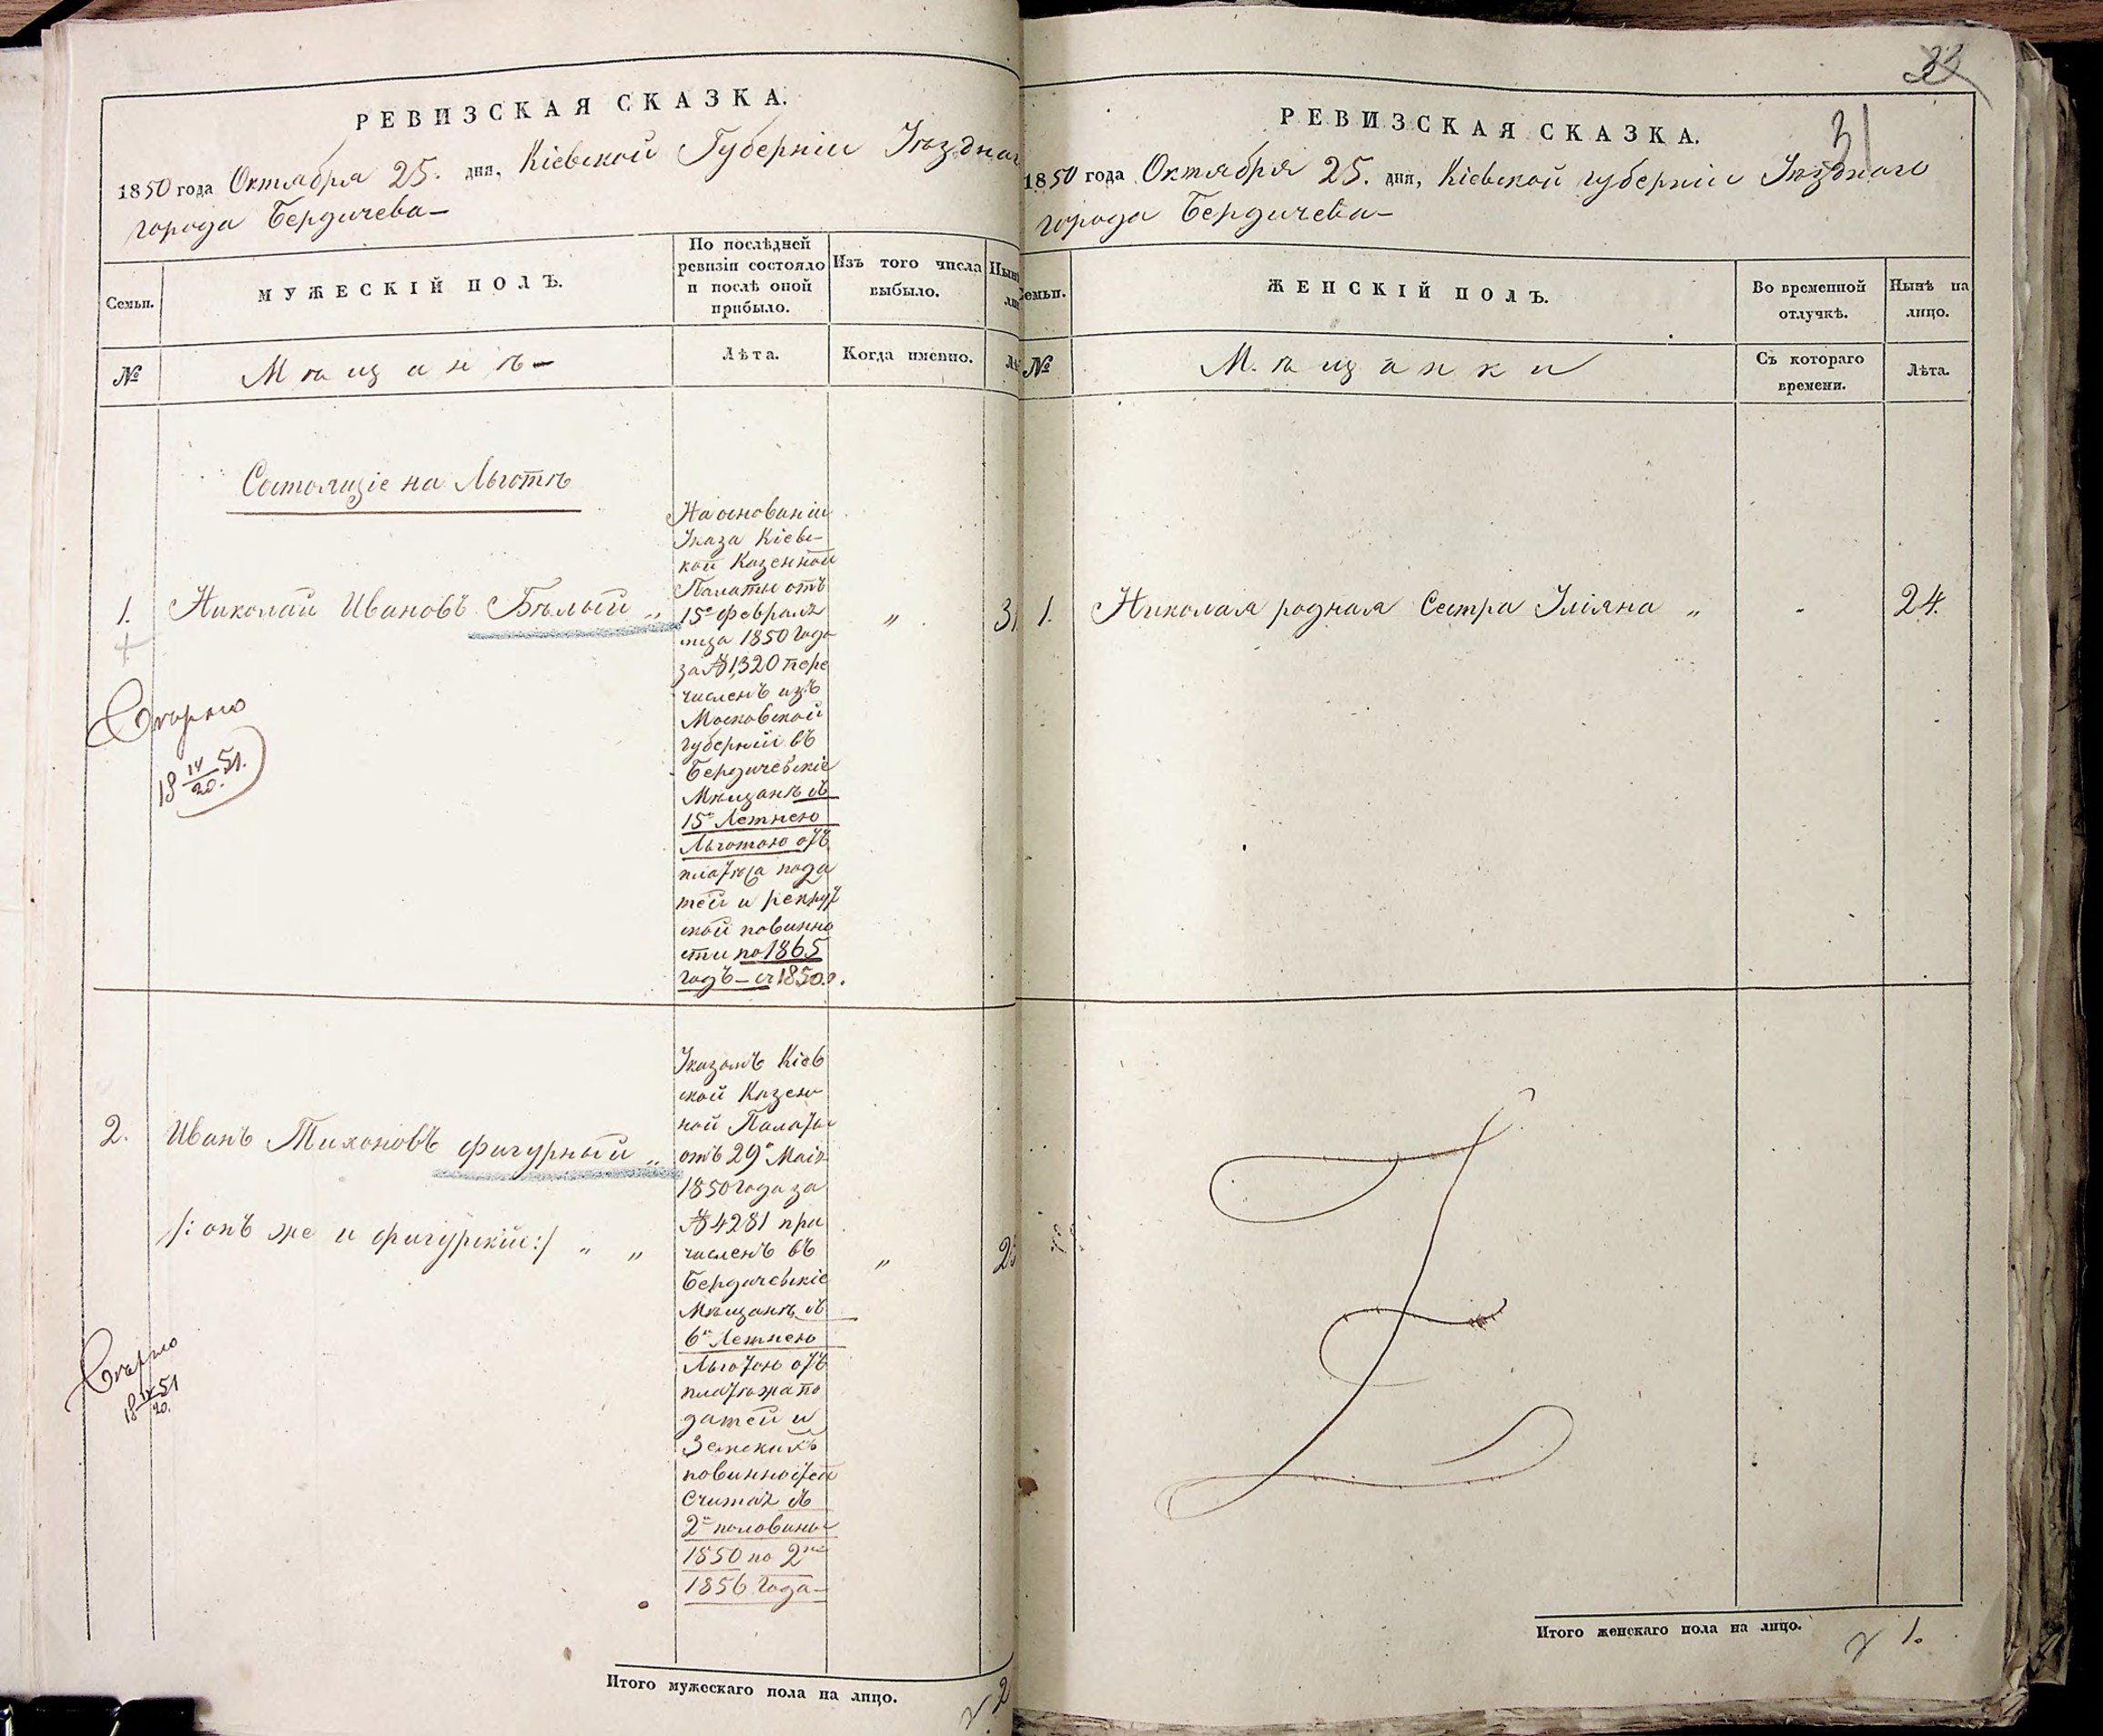 РЕВИЗСКАЯ СКАЗКА.
1850 года Октября 25. дня, Кіевской Губерніи Уѣзднаг
города Бердичева—
Семьи.
МУЖЕСКІЙ ПОЛЪ.
По послѣдней
ревизіи состояло
и послѣ оной
прибыло.
Изъ того числа
выбыло.
Нын
ли
№
Мѣщанѣ—
Лѣта.
Когда именно.
Лѣ
Состоящіе на Льготѣ
1.
Николай Ивановъ Бѣлый „
На основаніи
Указа Кіевс-
кой Казенной
Палаты отъ
15го Февраля
1850 года
за № 1,320 пере
численъ изъ
Московской
губерніи въ
Бердичевскіе
Мѣщанѣ съ
15о Летнею
Льготою отъ
платежа пода
тей и рекрут
ской повинно
сти по 1865
годъ — съ 1850. г.
„
31
18 51.
20.
2.
Иванъ Тихоновъ Фигурный „
/: онъ же и фигурскій :/ „ „
Указомъ Кіев
ской Казен
ной Палаты
отъ 29го Маія
1850 года за
№ 4281 при
численъ въ
Бердичевскіе
Мѣщанѣ, съ
6и Летнею
Льготою отъ
платежа по
датей и
Земскихъ
повинностей
Считая съ
2й половины
1850 по 2ю
1856 года—
„
18 51
20.
Итого мужескаго пола на лицо.
2
33
31
РЕВИЗСКАЯ СКАЗКА.
1850 года Октября 25. дня, Кіевской губерніи Уѣзднаго
города Бердичева—
емьи.
ЖЕНСКІЙ ПОЛЪ.
Во временной
отлучкѣ.
Нынѣ на
лицо.
№
Мѣщанки
Съ котораго
времени.
Лѣта.
1.
Николая родная Сестра Уліяна „
„
24.
Итого женскаго пола на лицо.
1.